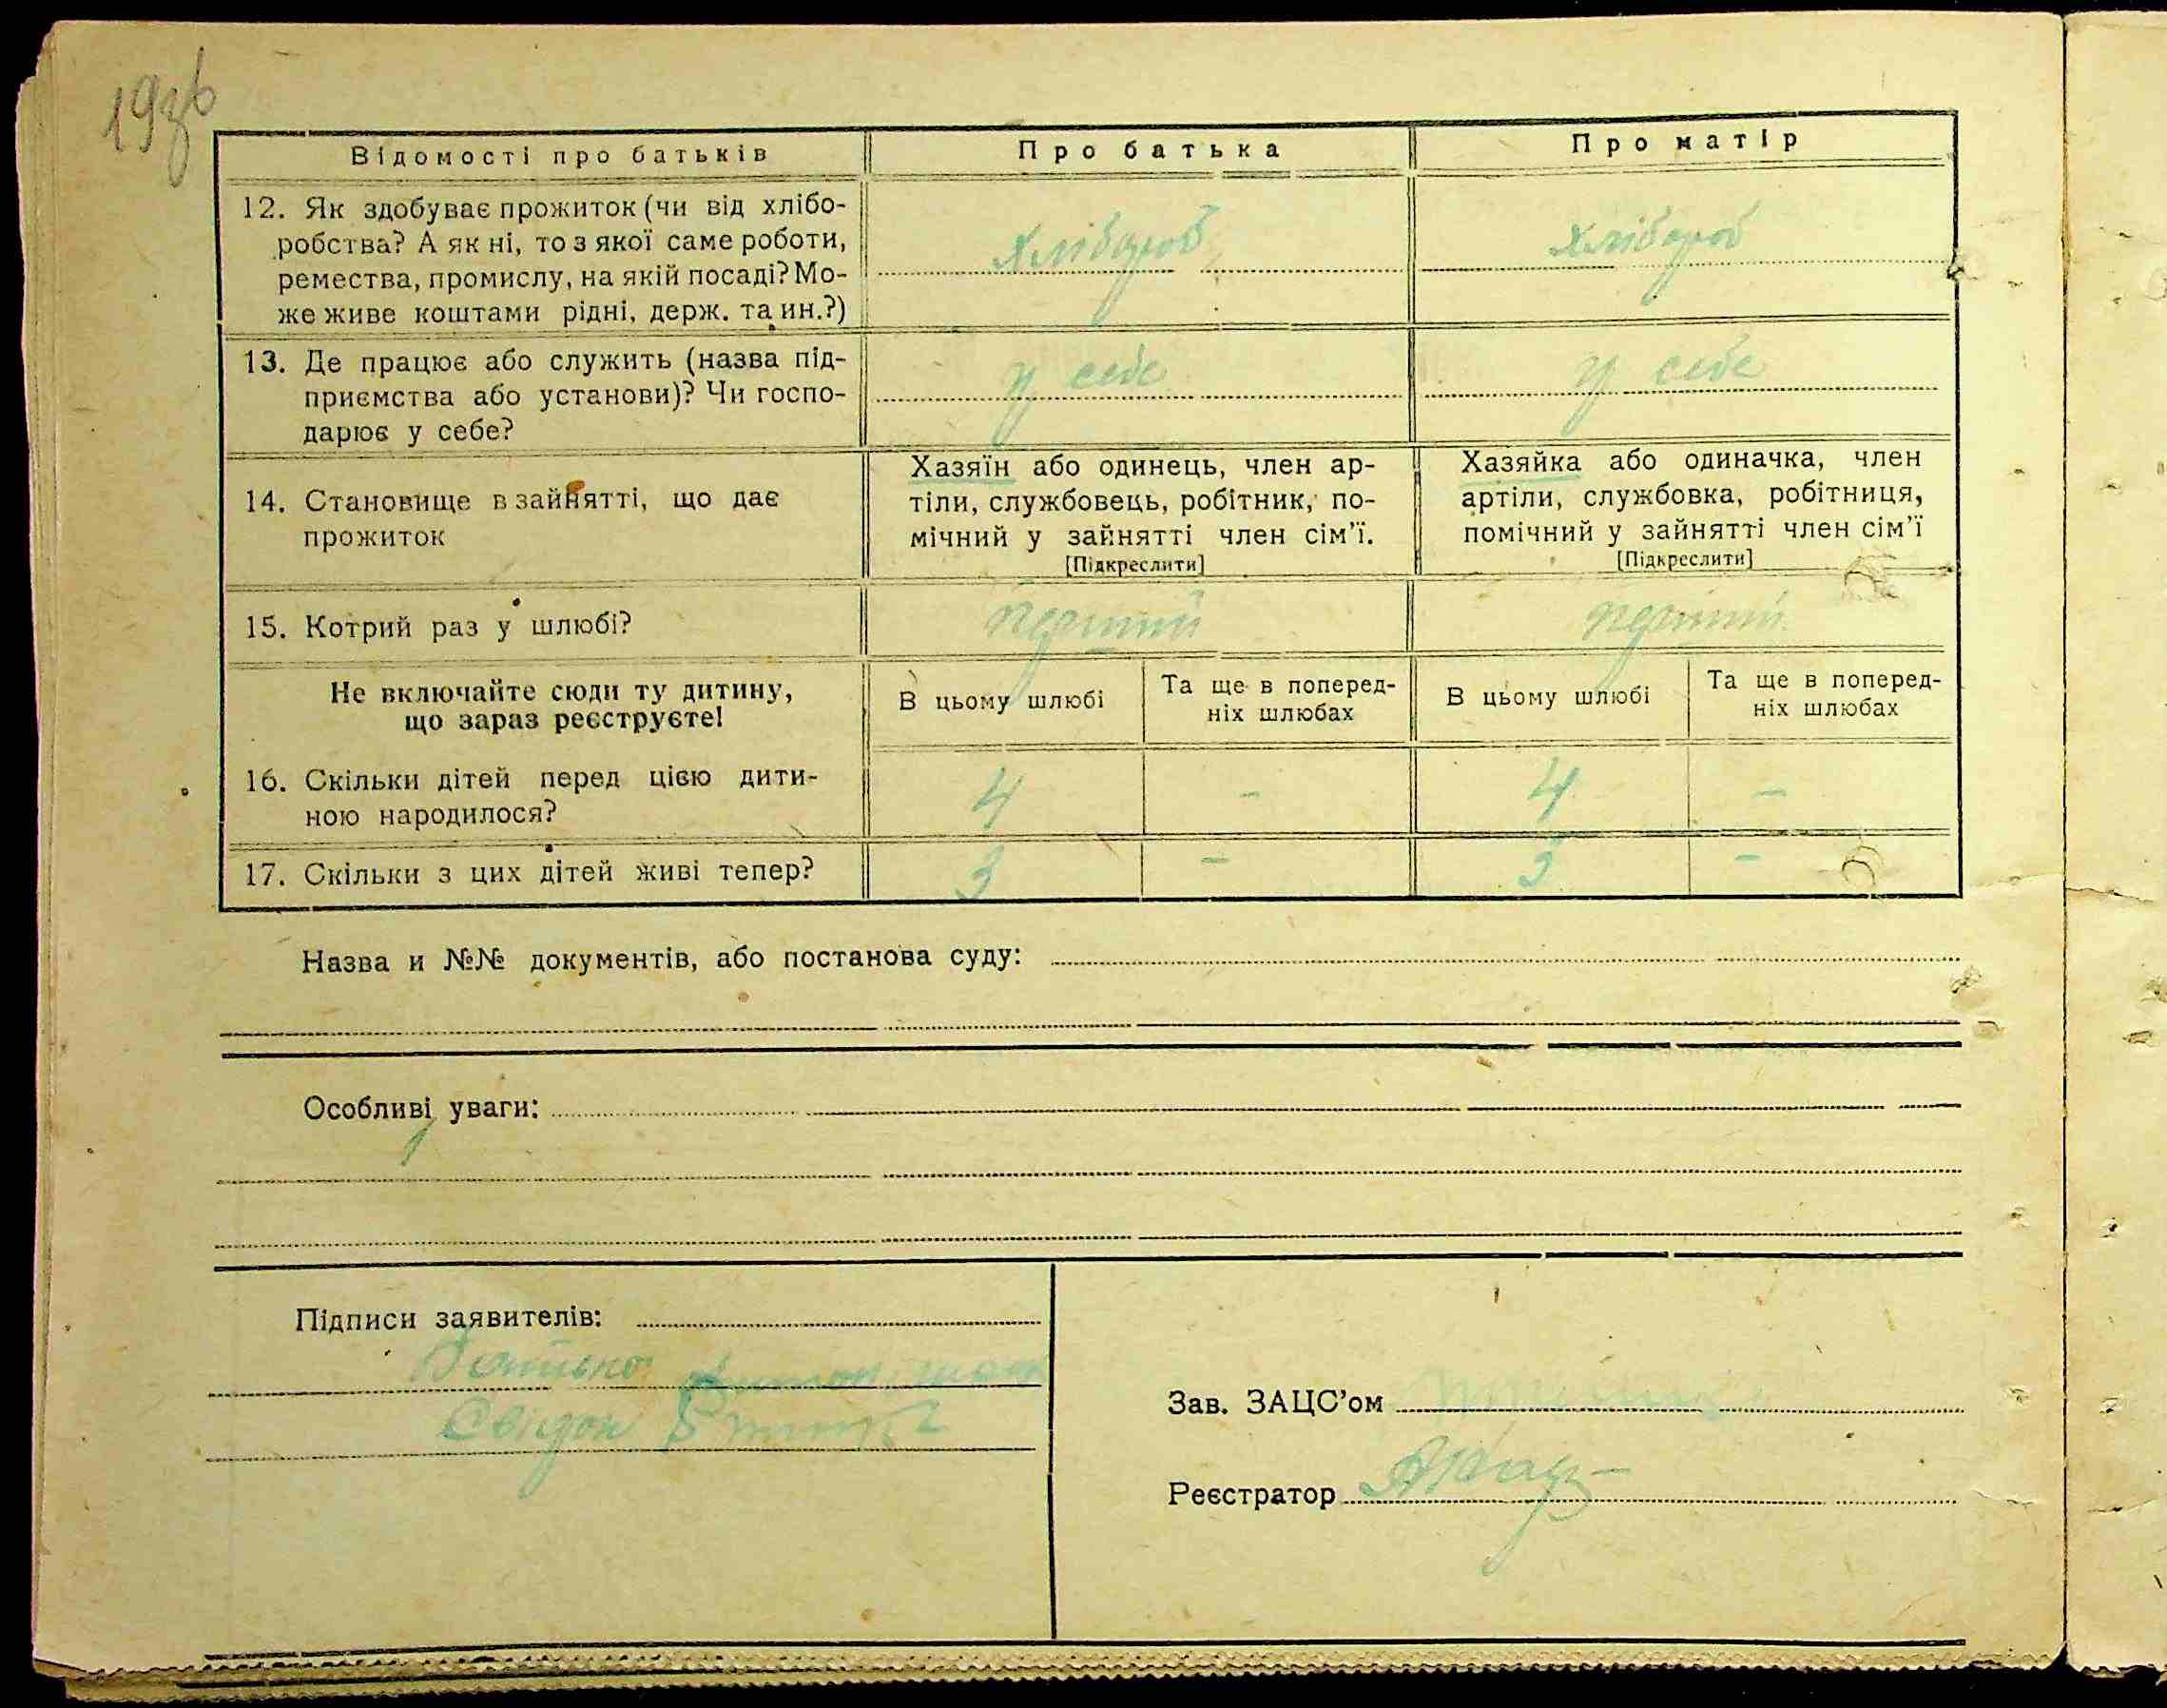 19зв
Відомості про батьків
Про батька
Про матір
12. Як здобуває прожиток (чи від хлібо-
робства? А як ні, то з якої саме роботи,
ремества, промислу, на якій посаді? Мо-
же живе коштами рідні, держ. та ин.?)
Хлібороб
Хлібороб
13. Де працює або служить (назва під-
приємства або установи)? Чи госпо-
дарює у себе?
у себе
у себе
14. Становище в зайнятті, що дає
прожиток
Хазяїн або одинець, член ар-
тіли, службовець, робітник, по-
мічний у зайнятті член сім’ї.
[Підкреслити]
Хазяйка або одиначка, член
артіли, службовка, робітниця,
помічний у зайнятті член сім’ї
[Підкреслити]
15. Котрий раз у шлюбі?
перший
перший
Не включайте сюди ту дитину,
що зараз реєструєте!
В цьому шлюбі
Та ще в поперед-
ніх шлюбах
В цьому шлюбі
Та ще в поперед-
ніх шлюбах
16. Скільки дітей перед цією дити-
ною народилося?
4
-
4
-
17. Скільки з цих дітей живі тепер?
3
-
3
-
Назва и №№ документів, або постанова суду:
Особливі уваги:
Підписи заявителів:
Батько
Свідок
Зав. ЗАЦС’ом
Реєстратор